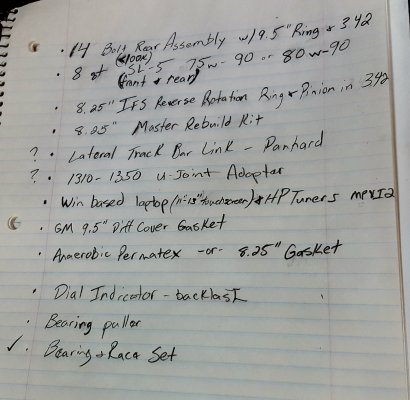 · 14 Bolt Rear Assembly w/ 9.5" Ring & 3.42
(100%)
· 8 qt GL-5 75w-90 or 80w-90
(front & rear)
· 8.25" IFS Reverse Rotation Ring & Pinion in 3.42
· 8.25" Master Rebuild Kit
? · Lateral Track Bar Link - Panhard
? · 1310-1350 U-Joint Adapter
· Win based laptop (11"-13" touchscreen) & HP Tuners MPVI2
· GM 9.5" Diff Cover Gasket
· Anaerobic Permatex -or- 8.25" Gasket
· Dial Indicator - backlash
· Bearing puller
✓ · Bearing & Race Set